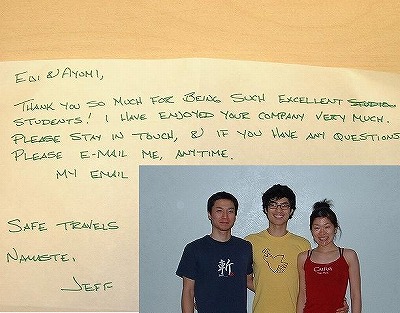 EDI & AYUMI,
THANK YOU SO MUCH FOR BEING SUCH EXCELLENT STUDIO
STUDENTS! I HAVE ENJOYED YOUR COMPANY VERY MUCH.
PLEASE STAY IN TOUCH, & IF YOU HAVE ANY QUESTIONS
PLEASE E-MAIL ME, ANYTIME.
MY EMAIL
SAFE TRAVELS
NAMASTE,
JEFF
斬